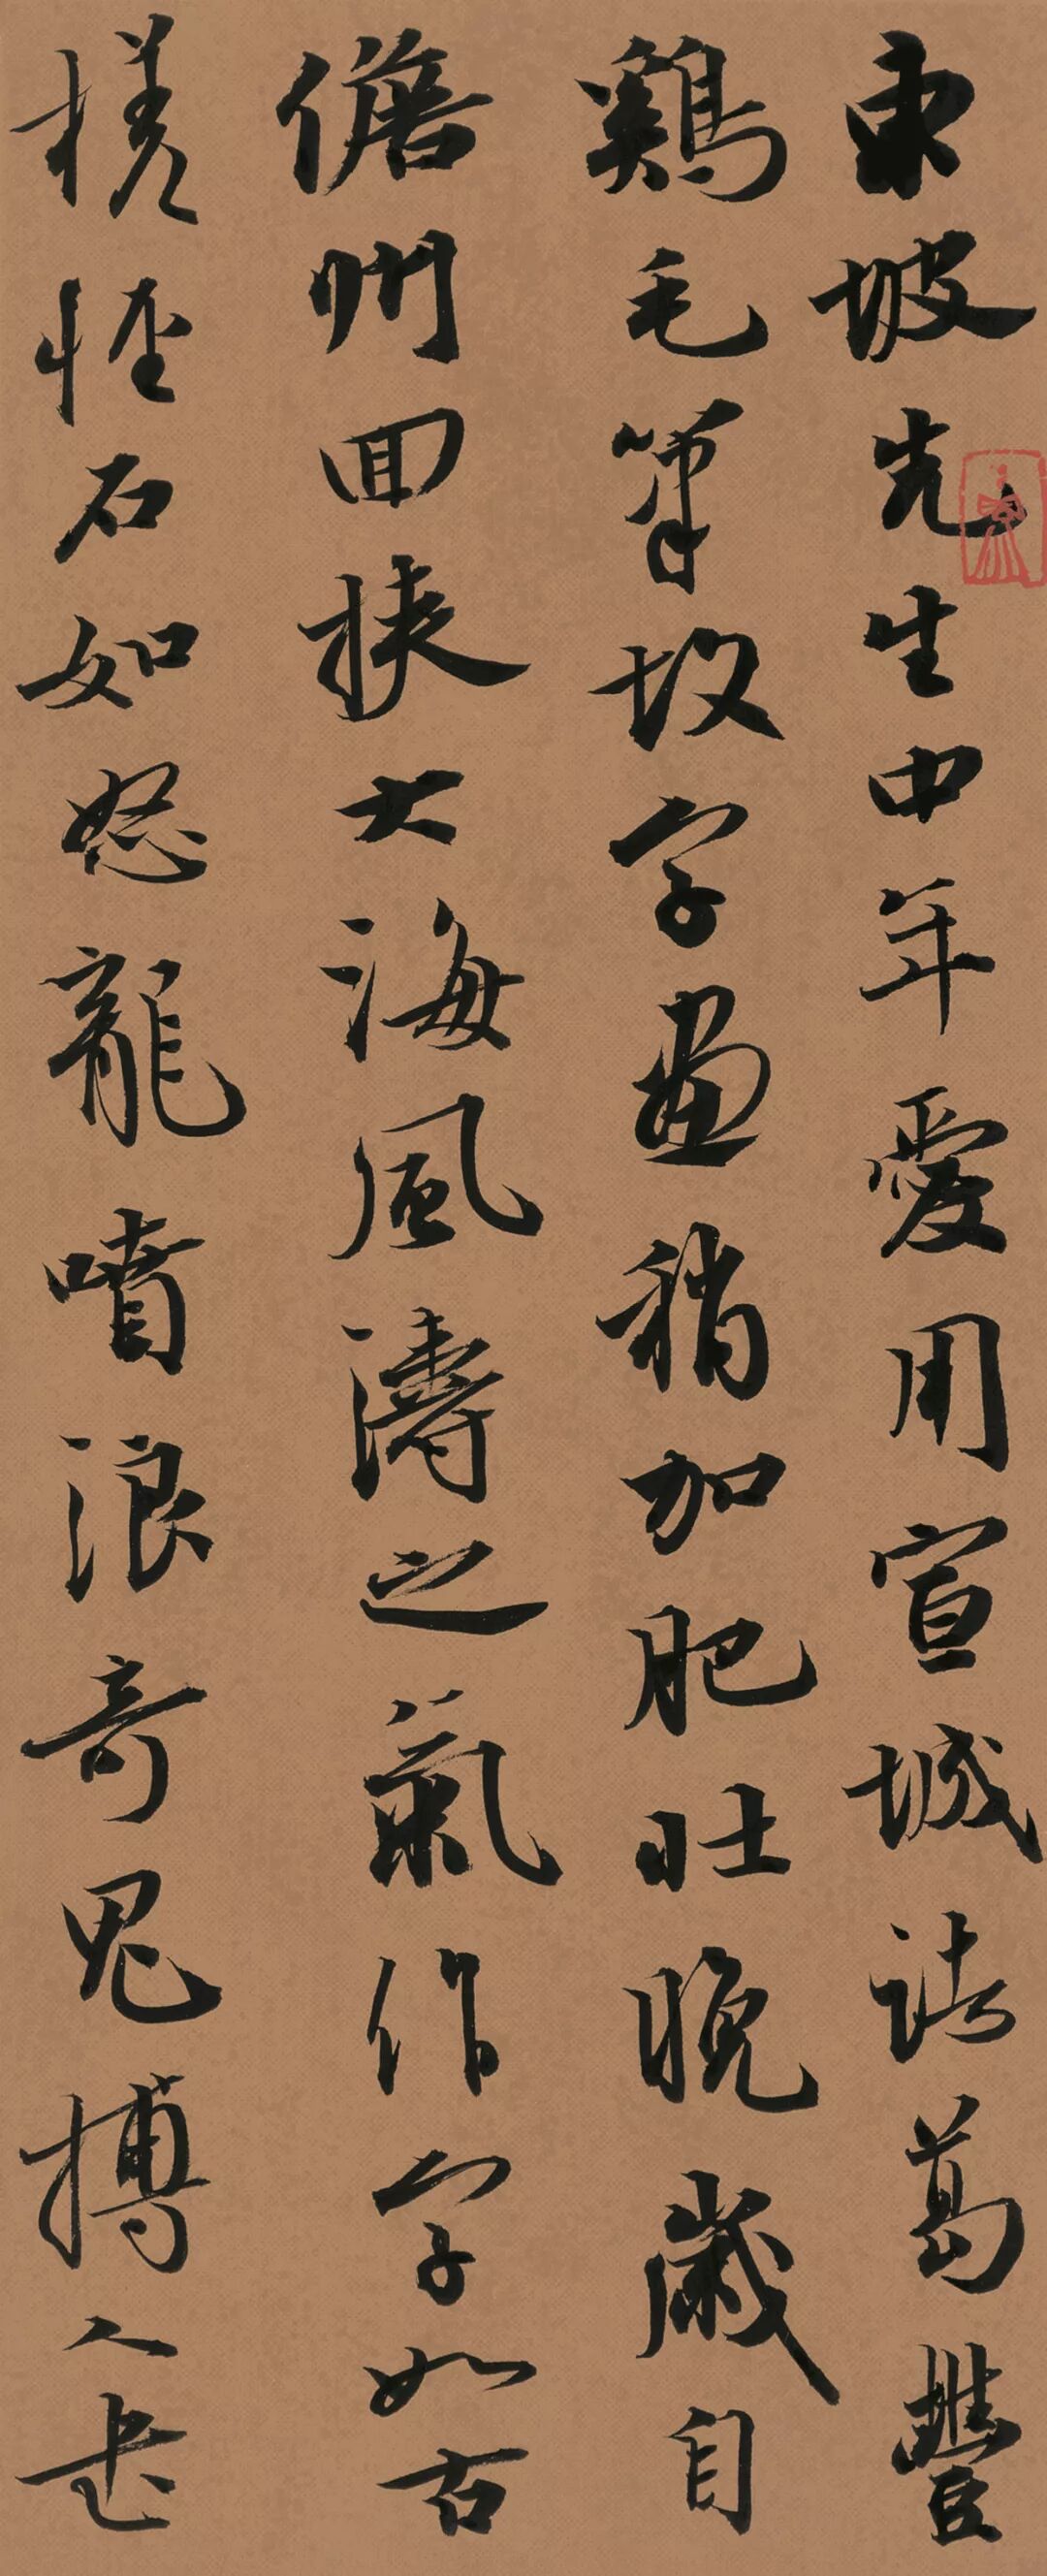 東坡先生中年愛用宣城諸葛豐
鷄毛筆故字畫稍加肥壯晚歲自
儋州回挾大海風濤之氣作字如古
槎怪石如怒龍噴浪奇鬼搏人書